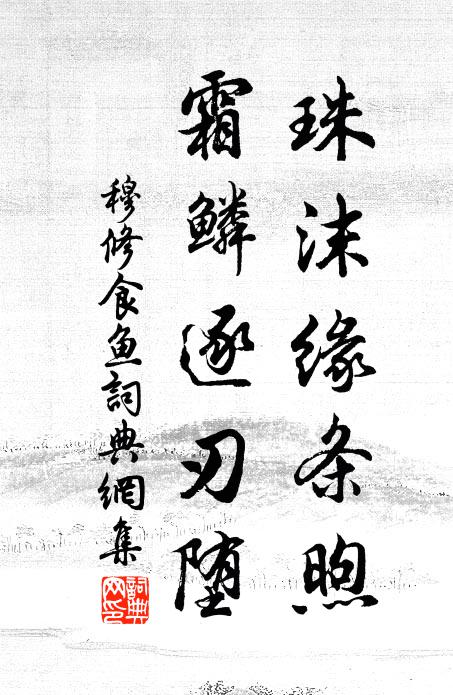 珠沫缘条煦
霜鳞逐刃堕
穆修食鱼詞典網集
詞典网印